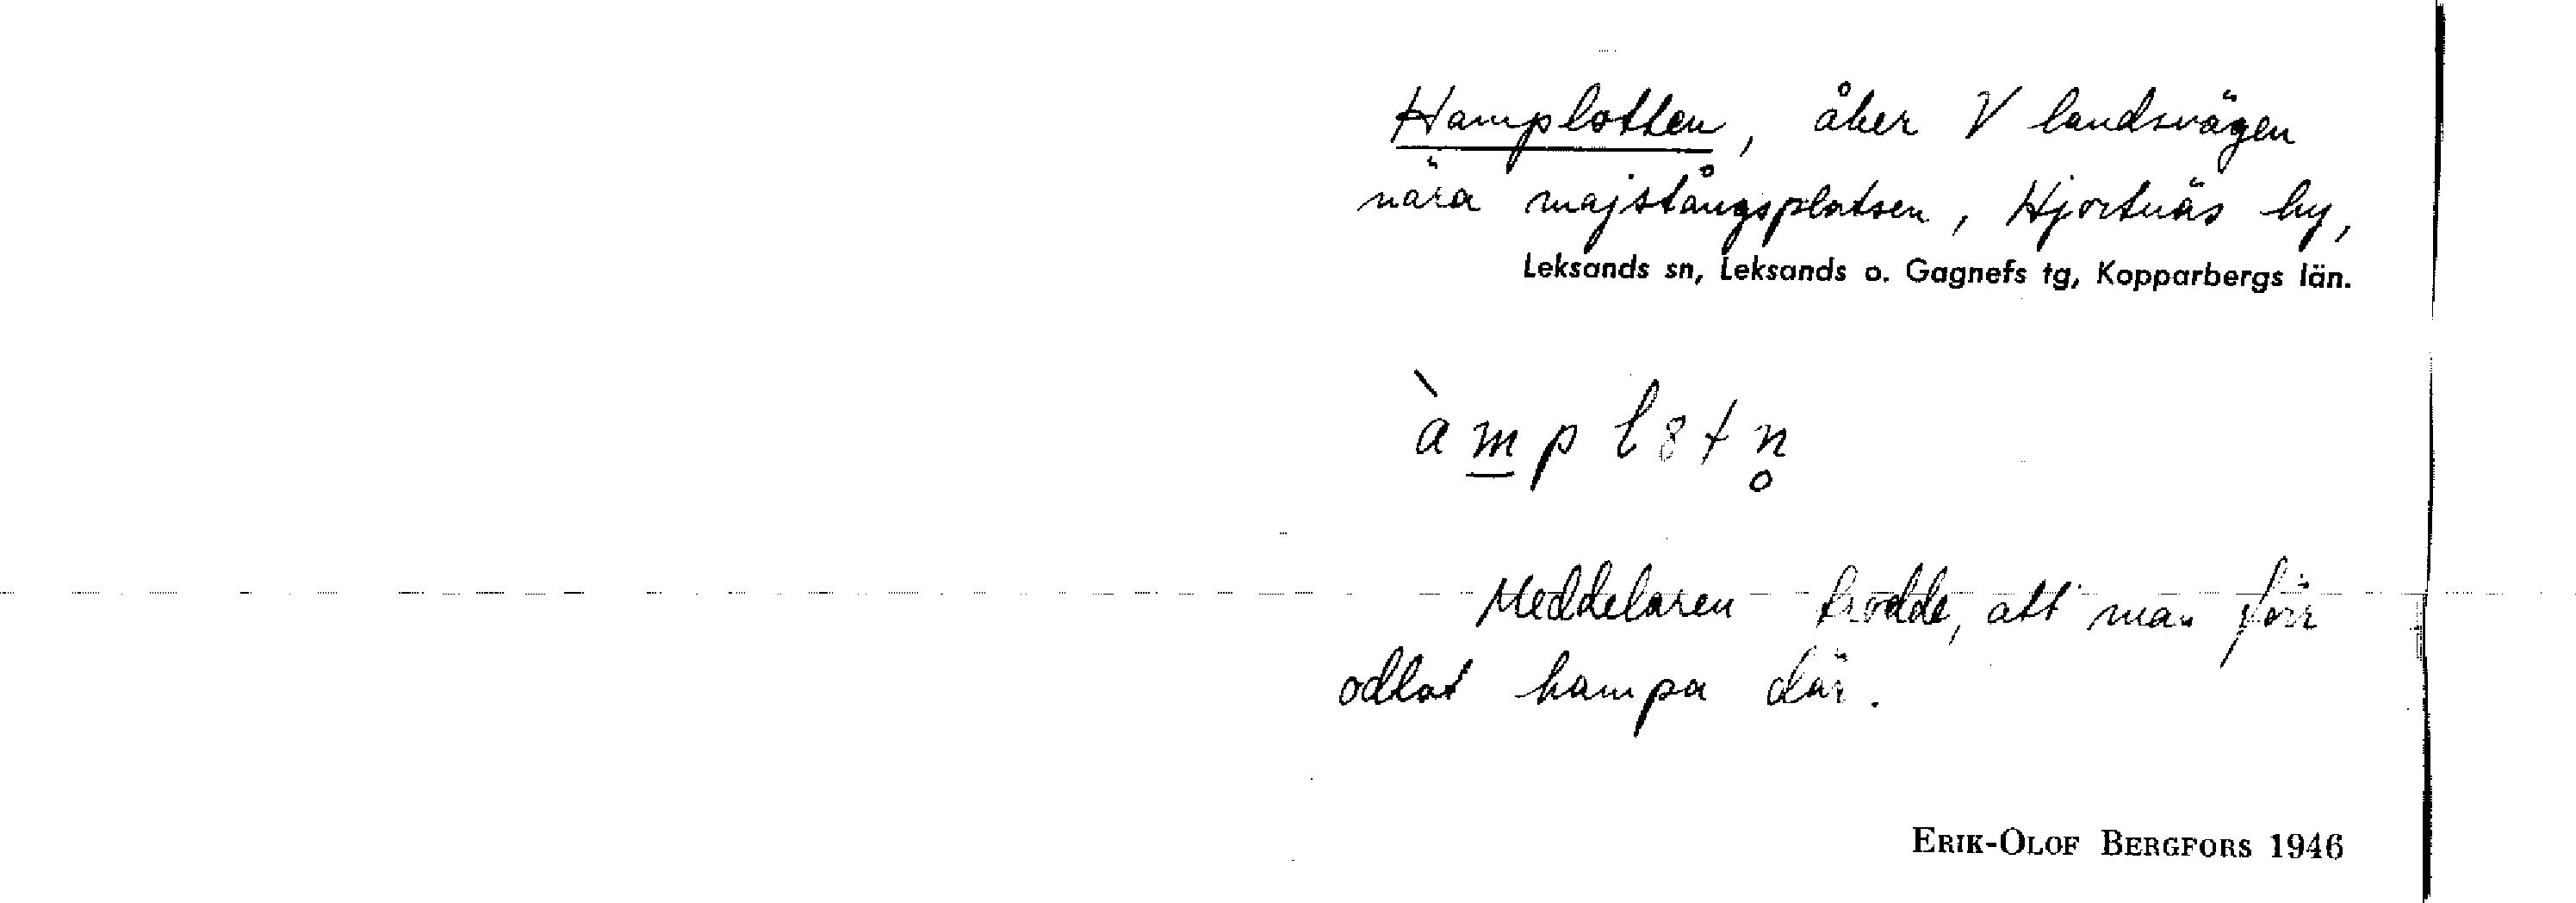 Hamplotten, åker V landsvägen
nära majstångsplatsen, Hjortnäs by,
Leksands sn, Leksands o. Gagnefs tg, Kopparbergs län.
àm̲pl8tn̥
Meddelaren trodde, att man förr
odlat hampa där.
ERIK-OLOF BERGFORS 1946